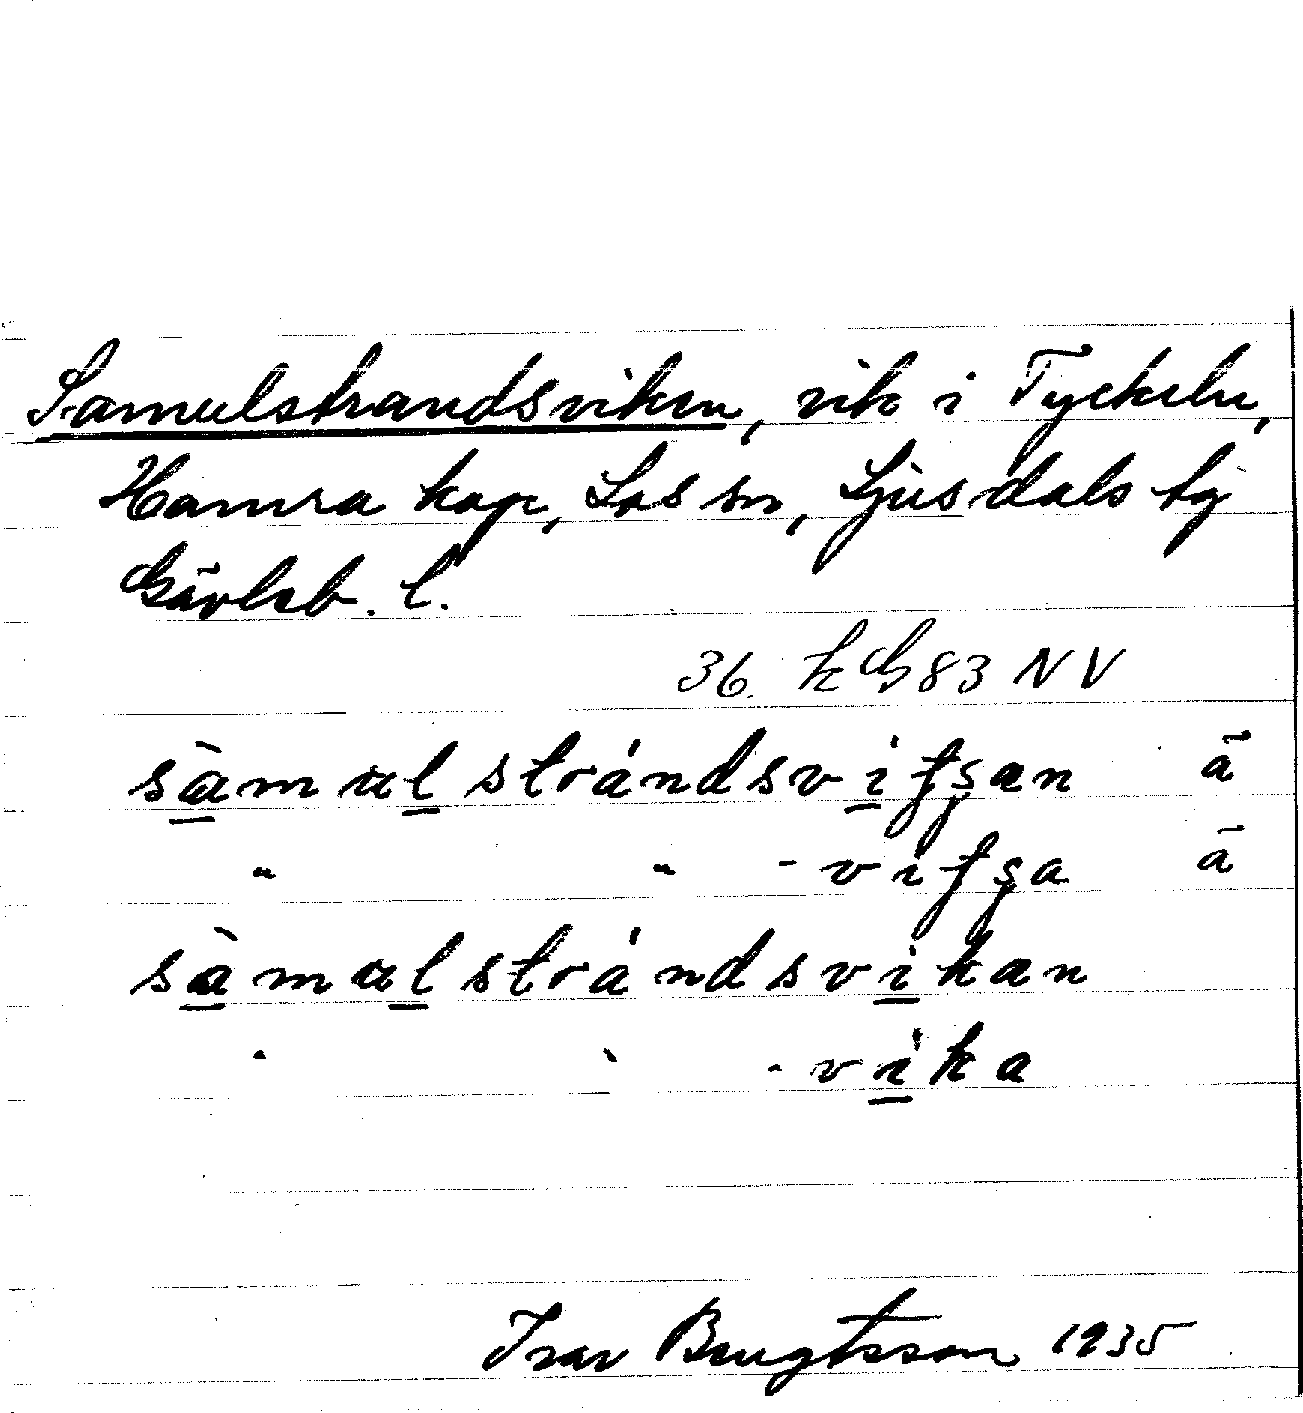 Samulstrandsviken, vik i Tyckeln,
Hamra kap, Los sn, Ljusdals tg
Gävleb. l.
36. k G 83 NV
sàmulstrándsvifşan ā
" " - vifşa ā
sàmulstrándsvíkan
" " - víka
Ivar Bengtsson 1935